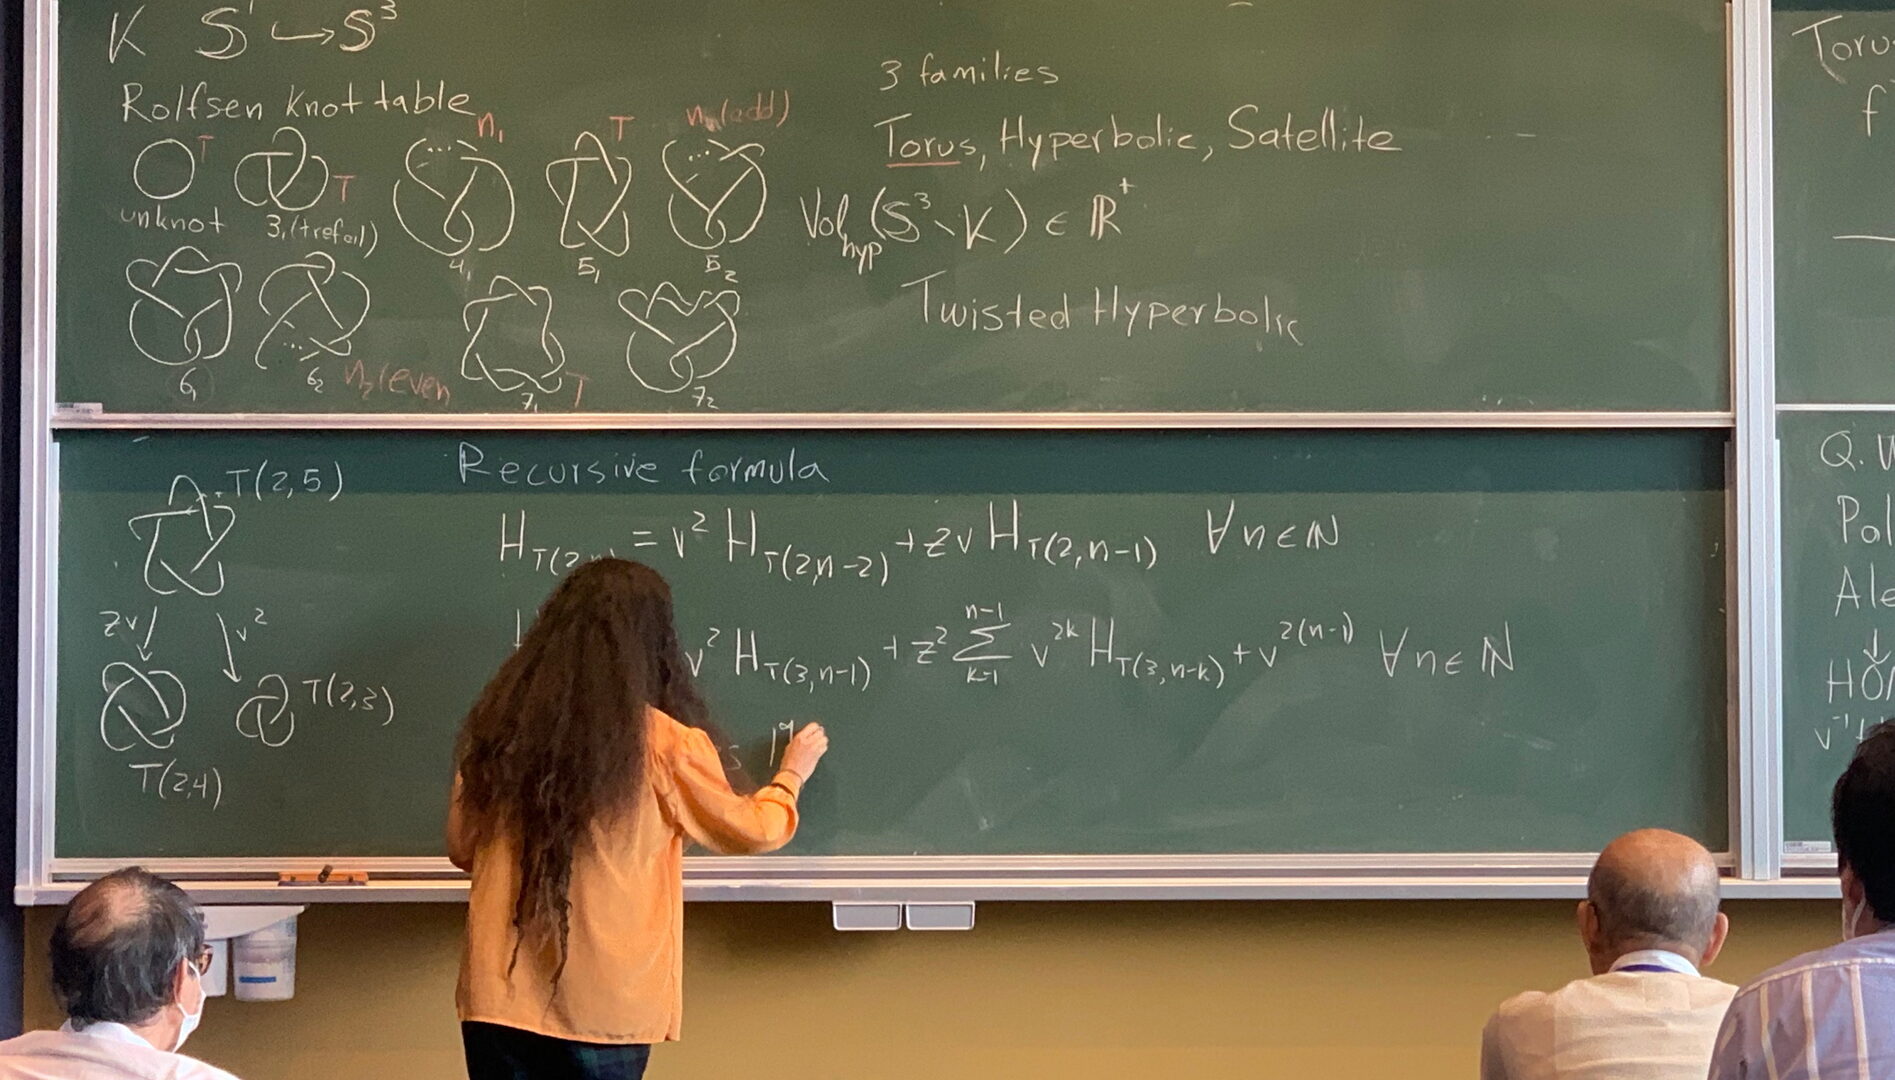 K S¹ ↪ S³
Rolfsen knot table
T T n₁ T (add)
unknot 3₁(trefoil) 4₁ 5₁ 5₂
6₁ 6₂ n₂(even 7₁ T 7₂
3 families
Torus, Hyperbolic, Satellite
Vol_hyp (S³∖K) ∈ ℝ⁺
Twisted Hyperbolic
T(2,5)
zv v²
T(2,3)
T(2,4)
Recursive formula
H_T(2 = v² H_T(2,n-2) + zv H_T(2,n-1) ∀n∈ℕ
v² H_T(3,n-1) + z² ∑_{k=1}^{n-1} v^{2k} H_T(3,n-k) + v^{2(n-1)} ∀n∈ℕ
Toru
f
Q. W
Pol
Ale
↓
HO
v⁻¹